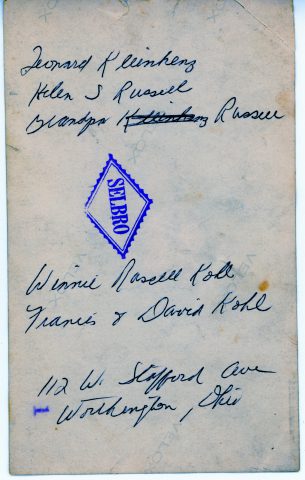 Leonard Kleinhenz
Helen S Russell
Grandpa Kleinhenz Russell
SELBRO
Winnie Russell Kohl
Francis & David Kohl
112 W. Stafford Ave
Worthington, Ohio